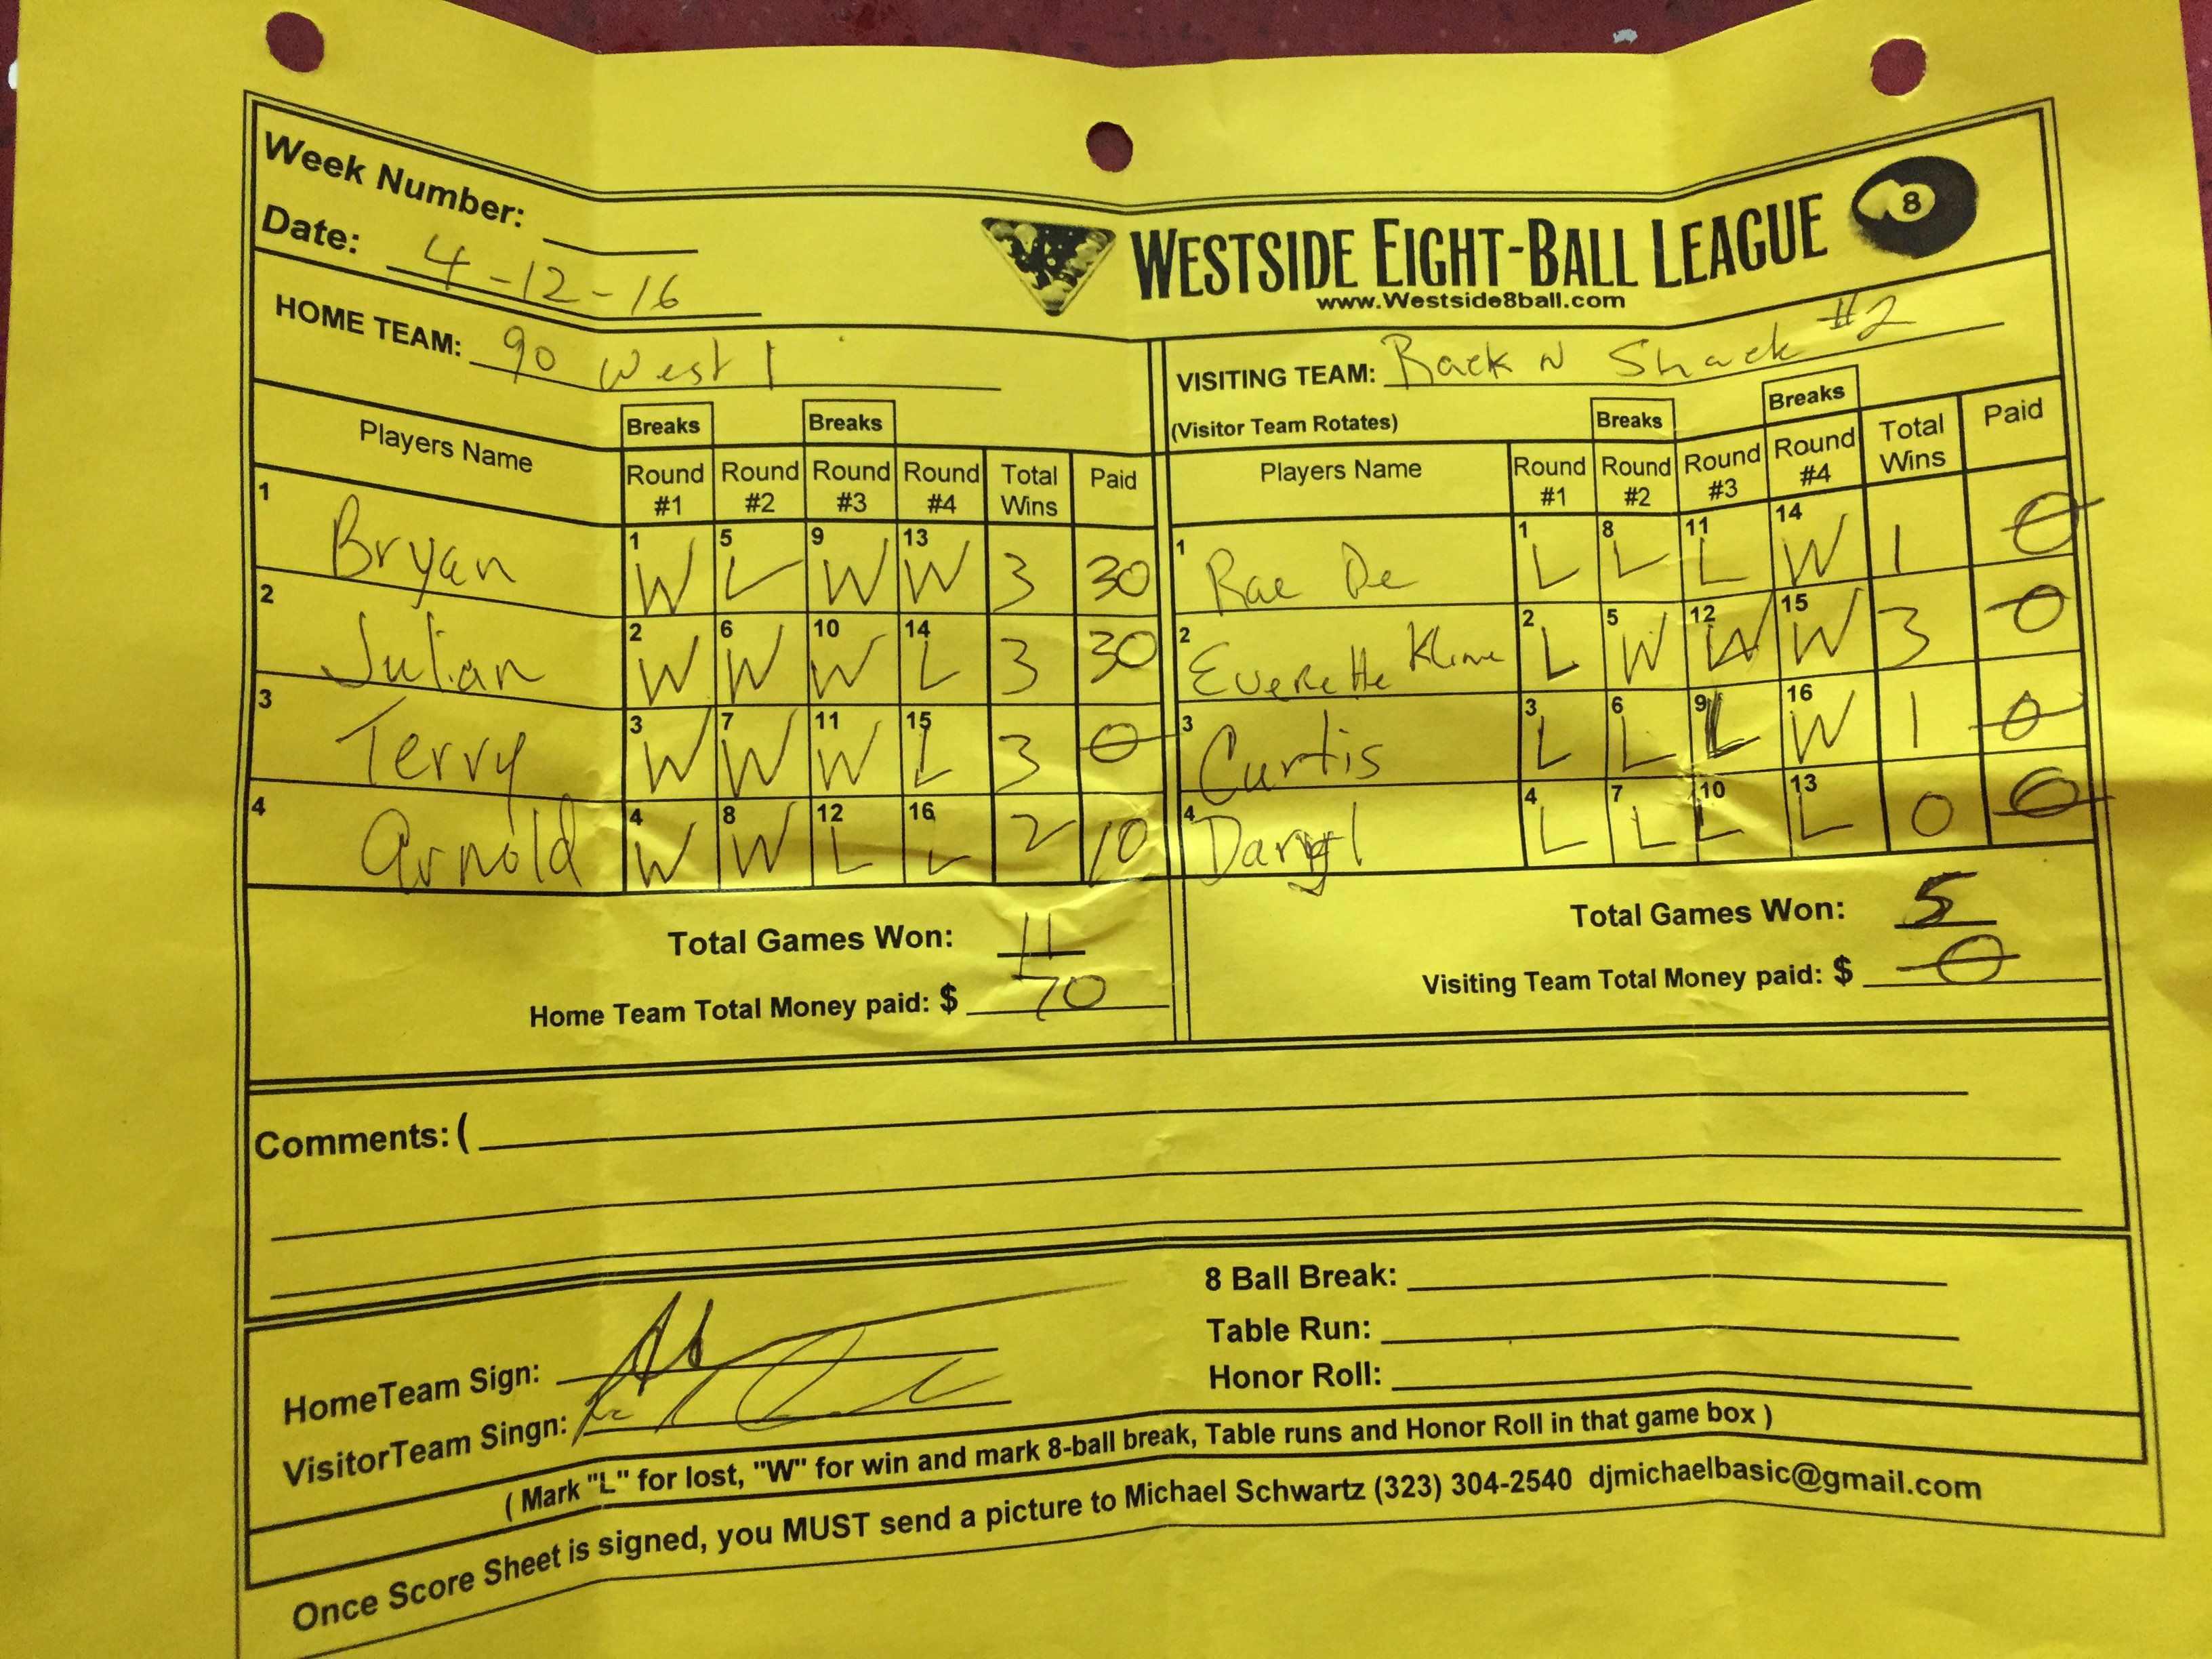 Week Number:
Date: 4-12-16
8
WESTSIDE EIGHT-BALL LEAGUE
www.Westside8ball.com
HOME TEAM: 90 West 1
VISITING TEAM: Rack N Shack #2
(Visitor Team Rotates)
Breaks Breaks Breaks Breaks
Players Name Round #1 Round #2 Round #3 Round #4 Total Wins Paid Players Name Round #1 Round #2 Round #3 Round #4 Total Wins Paid
1 Bryan 1 W 5 L 9 W 13 W 3 30 1 Rae De 1 L 8 L 11 L 14 W 1 0
2 Julian 2 W 6 W 10 W 14 L 3 30 2 Everette Kline 2 L 5 W 12 W 15 W 3 0
3 Terry 3 W 7 W 11 W 15 L 3 0 3 Curtis 3 L 6 L 9 L 16 W 1 0
4 Arnold 4 W 8 W 12 L 16 L 2 10 4 Darryl 4 L 7 L 10 L 13 L 0 0
Total Games Won: 11
Home Team Total Money paid: $ 70
Total Games Won: 5
Visiting Team Total Money paid: $ 0
Comments: (
8 Ball Break:
Table Run:
Honor Roll:
HomeTeam Sign:
VisitorTeam Singn:
( Mark "L" for lost, "W" for win and mark 8-ball break, Table runs and Honor Roll in that game box )
Once Score Sheet is signed, you MUST send a picture to Michael Schwartz (323) 304-2540 djmichaelbasic@gmail.com